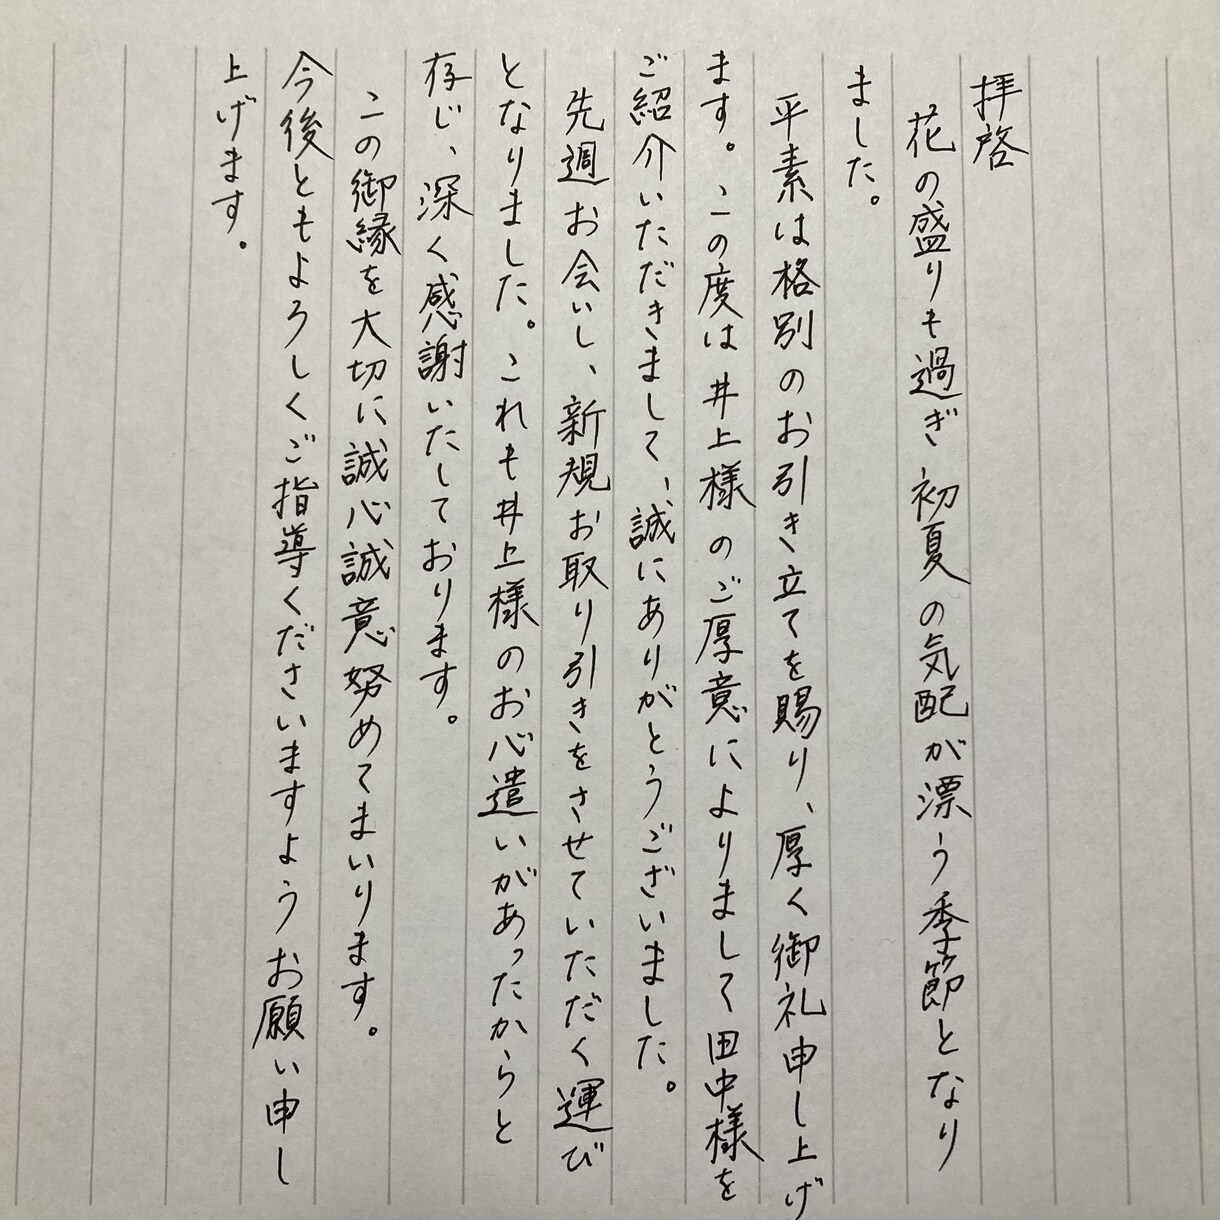 拝啓
花の盛りも過ぎ初夏の気配が漂う季節となり
ました。
平素は格別のお引き立てを賜り、厚く御礼申し上げ
ます。この度は井上様のご厚意によりまして田中様を
ご紹介いただきまして、誠にありがとうございました。
先週お会いし、新規お取り引きをさせていただく運び
となりました。これも井上様のお心遣いがあったからと
存じ、深く感謝いたしております。
この御縁を大切に誠心誠意努めてまいります。
今後ともよろしくご指導くださいますようお願い申し
上げます。